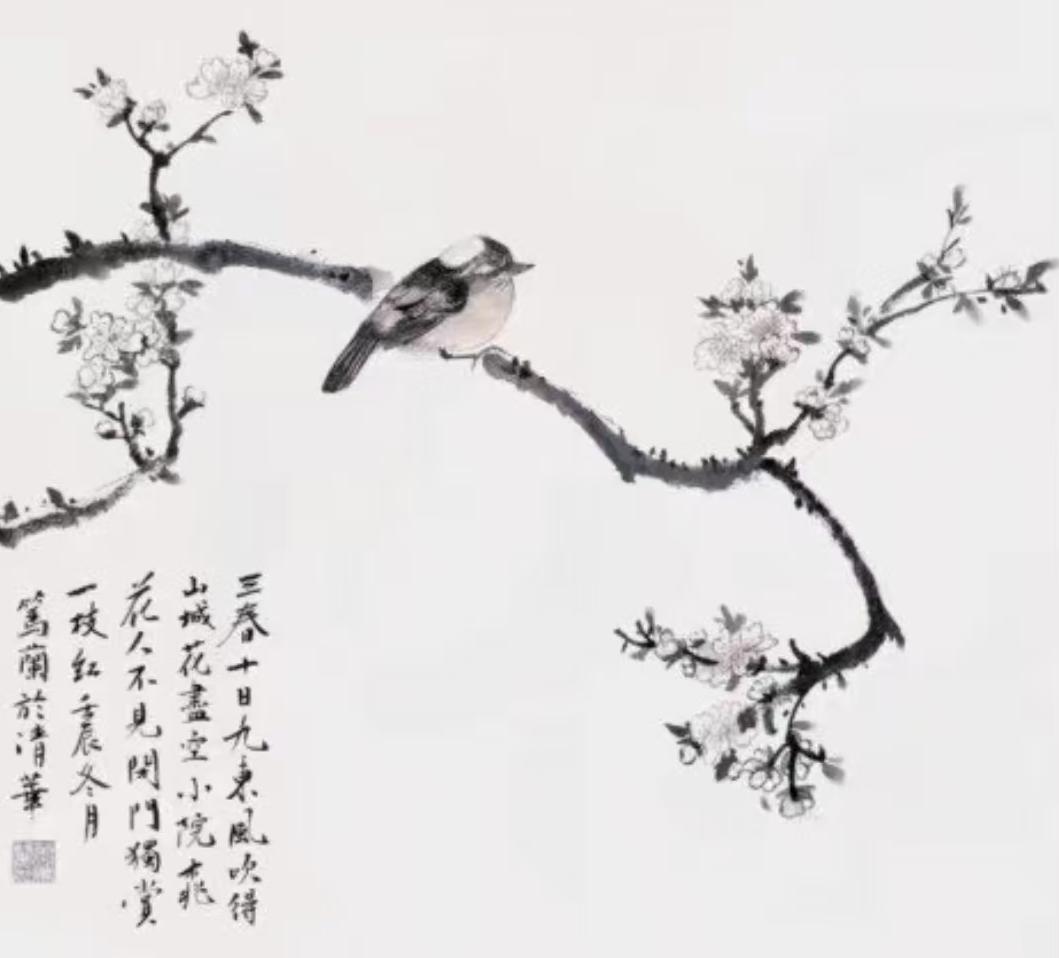 三春十日九東風吹得
山城花盡空小院桃
花人不見閉門獨賞
一枝紅壬辰冬月
篤蘭於清華